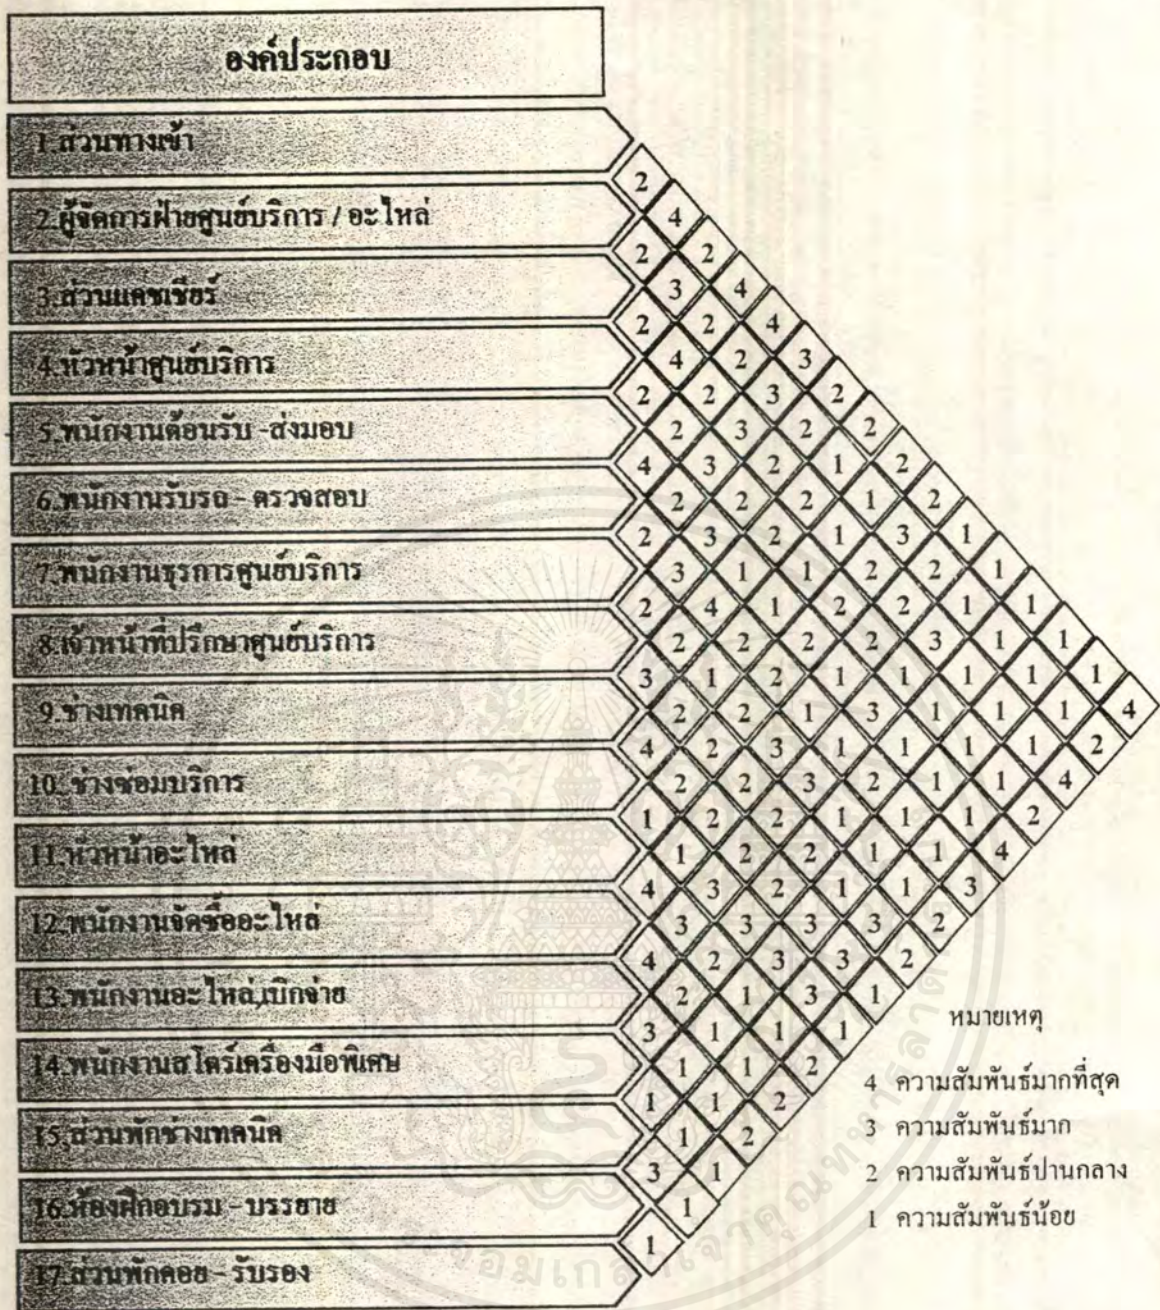 องค์ประกอบ
1.ส่วนทางเข้า
2.ผู้จัดการฝ่ายศูนย์บริการ / อะไหล่
3.ส่วนแคชเชียร์
4.หัวหน้าศูนย์บริการ
5.พนักงานต้อนรับ -ส่งมอบ
6.พนักงานรับรถ - ตรวจสอบ
7.พนักงานธุรการศูนย์บริการ
8.เจ้าหน้าที่ปรึกษาศูนย์บริการ
9.ช่างเทคนิค
10.ช่างซ่อมบริการ
11.หัวหน้าอะไหล่
12.พนักงานจัดซื้ออะไหล่
13.พนักงานอะไหล่,เบิกจ่าย
14.พนักงานสโตร์เครื่องมือพิเศษ
15.ส่วนพักช่างเทคนิค
16.ห้องฝึกอบรม - บรรยาย
17.ส่วนพักคอย - รับรอง
2 4 2 4 4 3 2 2 2 2 1 1 1 1 1 4
2 3 2 2 3 2 1 1 3 2 1 1 1 1 2
2 4 2 3 2 2 1 2 2 3 1 1 1 4
2 2 3 2 2 1 2 2 1 1 1 1 2
4 2 3 1 1 2 1 3 1 1 1 4
2 3 4 2 2 1 1 2 1 1 3
2 2 1 2 3 3 1 1 1 2
3 2 2 2 2 2 1 3 2
4 2 2 2 2 3 3 1
1 1 3 3 3 3 1
4 3 2 1 1 2
4 2 1 1 2
3 1 1 2
1 1 1
3 1
1
หมายเหตุ
4 ความสัมพันธ์มากที่สุด
3 ความสัมพันธ์มาก
2 ความสัมพันธ์ปานกลาง
1 ความสัมพันธ์น้อย